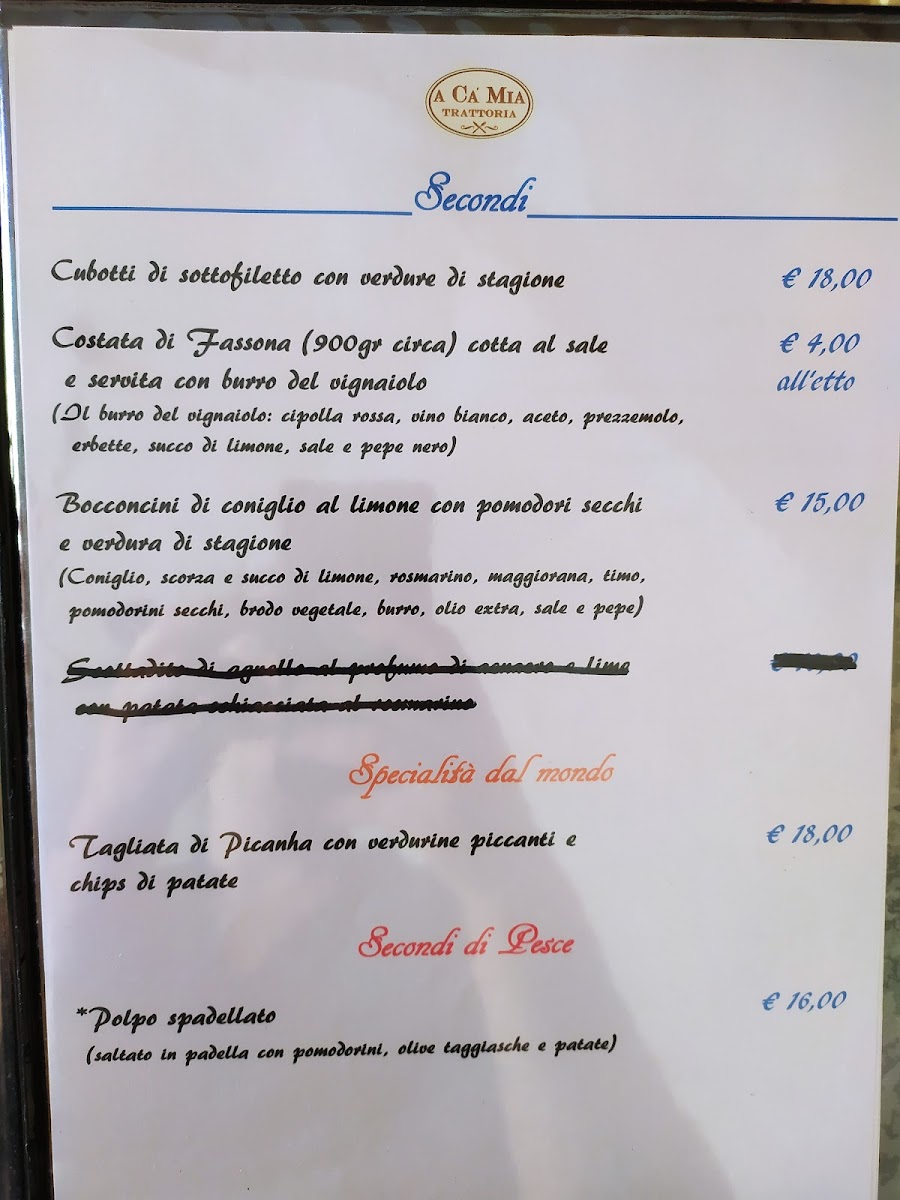 A CA' MIA
TRATTORIA
Secondi
Cubotti di sottofiletto con verdure di stagione € 18,00
Costata di Fassona (900gr circa) cotta al sale € 4,00
e servita con burro del vignaiolo all'etto
(Il burro del vignaiolo: cipolla rossa, vino bianco, aceto, prezzemolo,
erbette, succo di limone, sale e pepe nero)
Bocconcini di coniglio al limone con pomodori secchi € 15,00
e verdura di stagione
(Coniglio, scorza e succo di limone, rosmarino, maggiorana, timo,
pomodorini secchi, brodo vegetale, burro, olio extra, sale e pepe)
Scottadito di agnello al profumo di zenzero e lime €
con patata schiacciata al rosmarino
Specialità dal mondo
Tagliata di Picanha con verdurine piccanti e € 18,00
chips di patate
Secondi di Pesce
*Polpo spadellato € 16,00
(saltato in padella con pomodorini, olive taggiasche e patate)